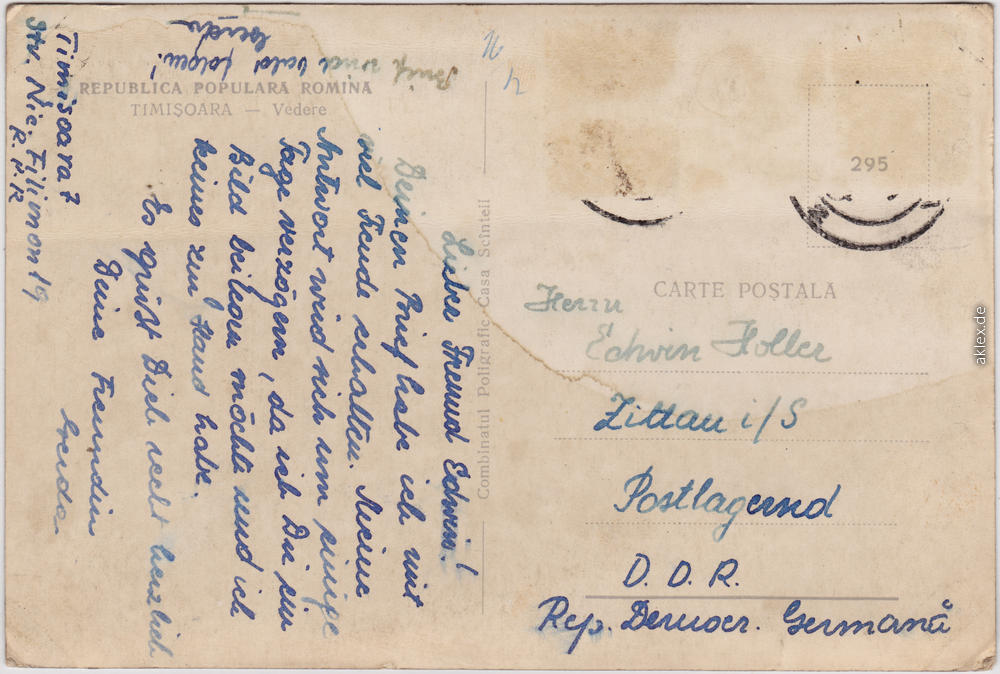 REPUBLICA POPULARĂ ROMÎNĂ
TIMIȘOARA — Vedere
Timisoara 7
Str. Nic. Filimon 19
R.P.R
Lieber Freund Edwin!
Deinen Brief habe ich mit
viel Freude erhalten. Meine
Antwort wird sich um einige
Tage verzögern, da ich Dir ein
Bild beilegen möchte und ich
keines zur Hand habe.
Es grüst Dich recht herzlich
Deine Freundin
Gerda
Brief wird bald folgen!
Gerda
Combinatul Poligrafic Casa Scînteii
295
CARTE POȘTALĂ
Herrn
Edwin Holler
Zittau i/S
Postlagernd
D. D. R.
Rep. Democr. Germană
aklex.de